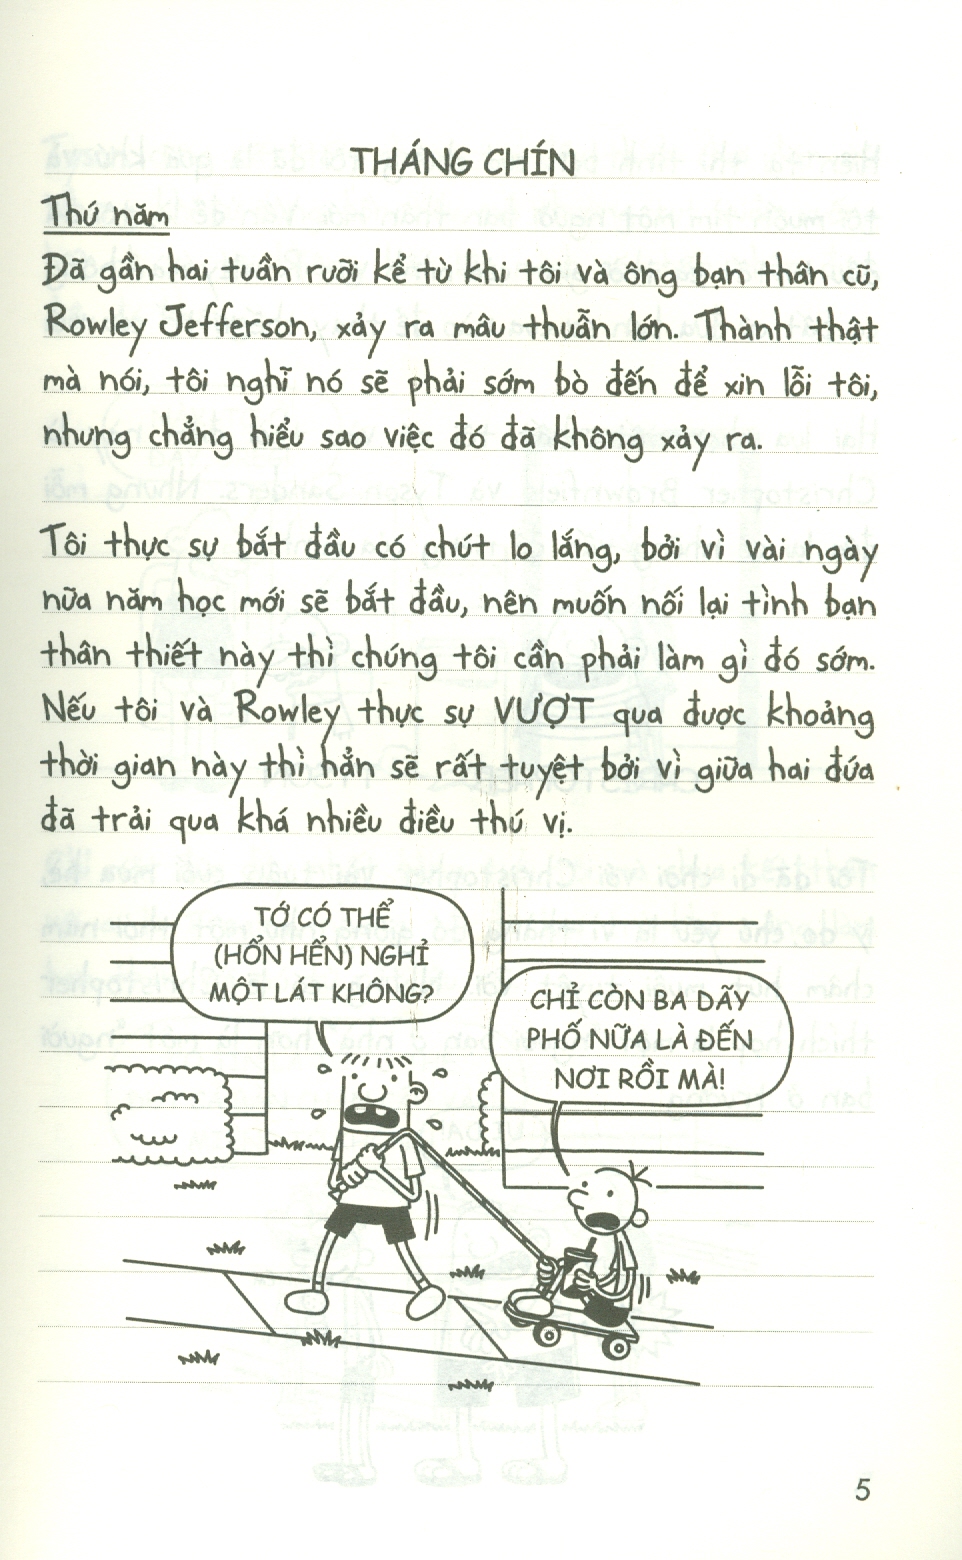 THÁNG CHÍN
Thứ năm
Đã gần hai tuần rưỡi kể từ khi tôi và ông bạn thân cũ,
Rowley Jefferson, xảy ra mâu thuẫn lớn. Thành thật
mà nói, tôi nghĩ nó sẽ phải sớm bò đến để xin lỗi tôi,
nhưng chẳng hiểu sao việc đó đã không xảy ra.
Tôi thực sự bắt đầu có chút lo lắng, bởi vì vài ngày
nữa năm học mới sẽ bắt đầu, nên muốn nối lại tình bạn
thân thiết này thì chúng tôi cần phải làm gì đó sớm.
Nếu tôi và Rowley thực sự VƯỢT qua được khoảng
thời gian này thì hẳn sẽ rất tuyệt bởi vì giữa hai đứa
đã trải qua khá nhiều điều thú vị.
TỚ CÓ THỂ
(HỔN HỂN) NGHỈ
MỘT LÁT KHÔNG?
CHỈ CÒN BA DÃY
PHỐ NỮA LÀ ĐẾN
NƠI RỒI MÀ!
5